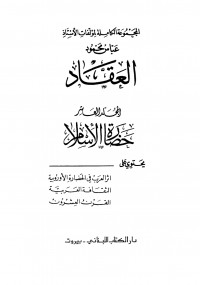 المجموعة الكاملة لمؤلفات الأستاذ
عباس محمود
العقاد
المجلد العاشر
حضارة الإسلام
يحتوي على
أثر العرب في الحضارة الأوروبية
الثقافة العربية
القرن العشرون
دار الكتاب اللبناني - بيروت